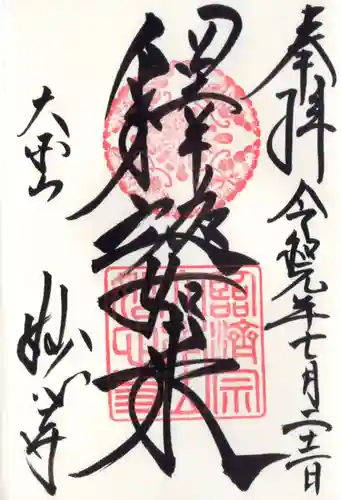 奉拝
令和元年七月二十二日
釋迦如来
臨濟宗
大本山
妙心寺